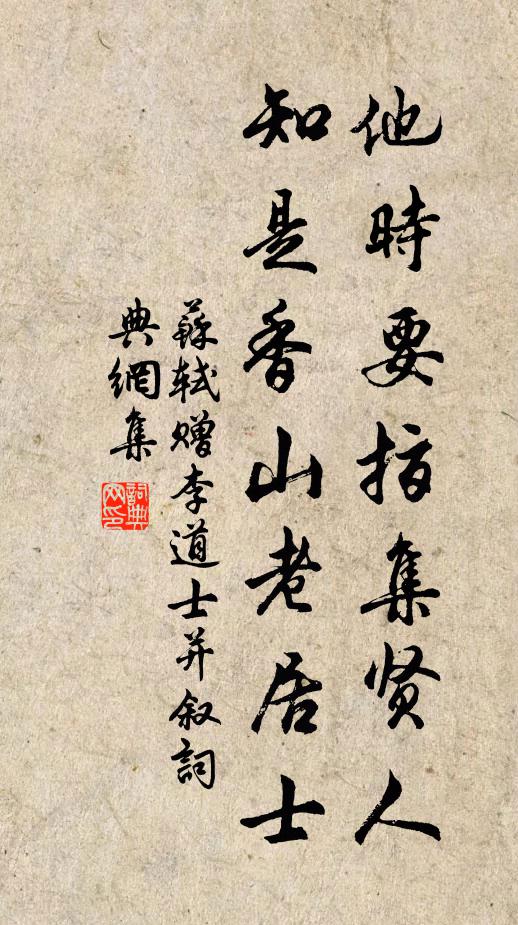 他時要指集贤人
知是香山老居士
蘇軾赠李道士并叙詞
典網集
詞典网印